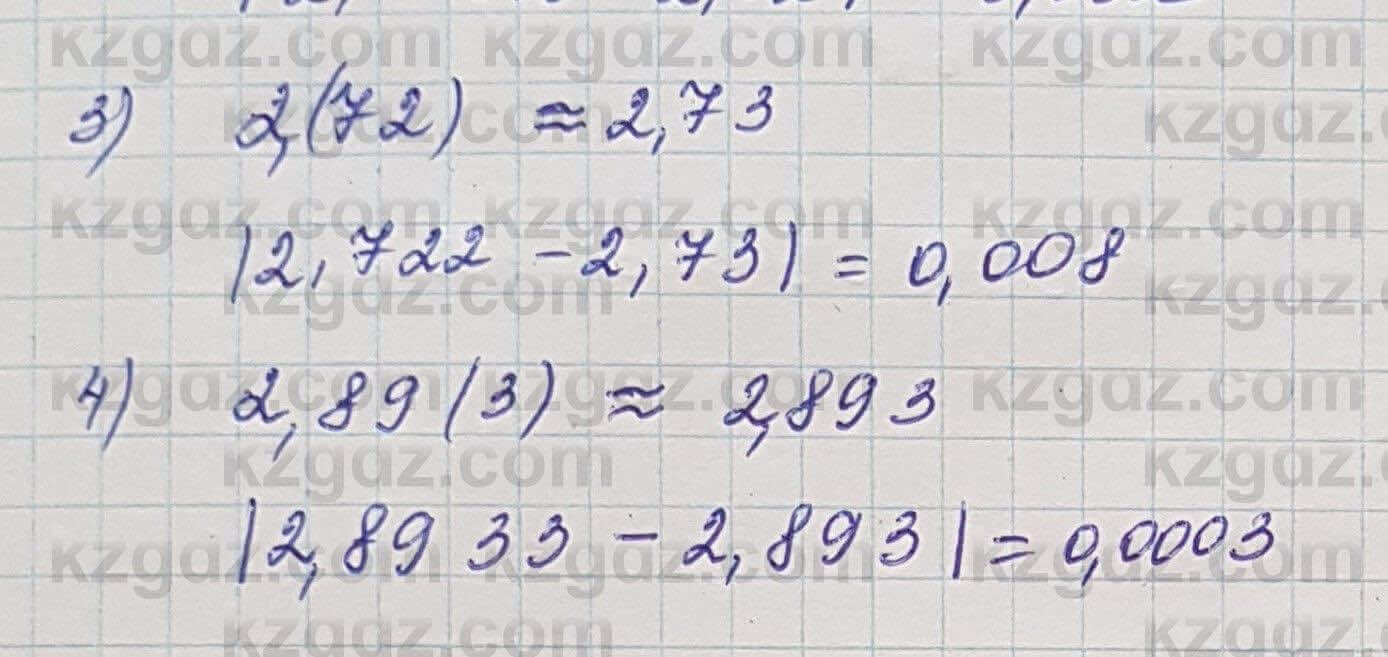 3) 2,(72) ≈ 2,73
|2,722 - 2,73| = 0,008
4) 2,89(3) ≈ 2,893
|2,8933 - 2,893| = 0,0003
kzgaz.com